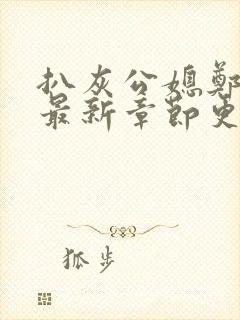 扒灰公媳鄭
最新章節更
狐步